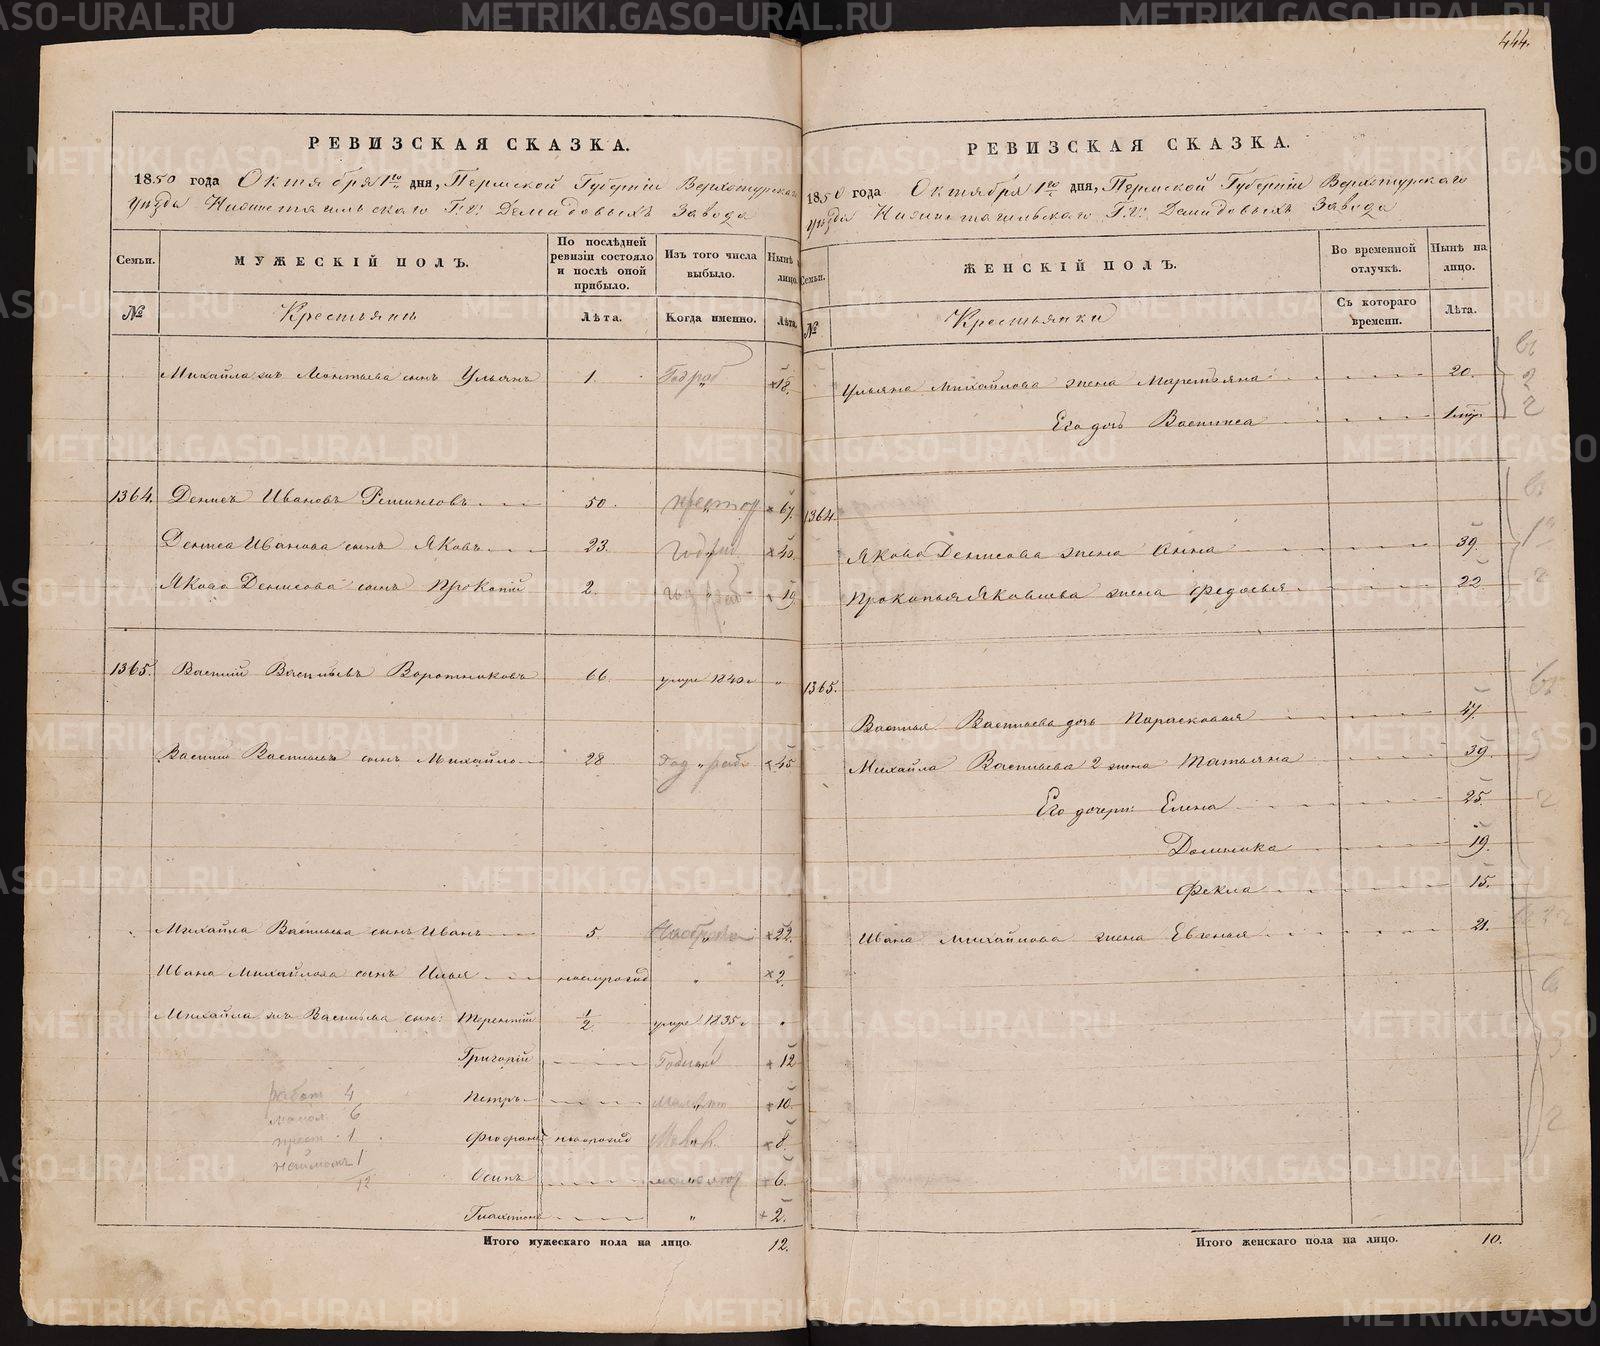 444.
РЕВИЗСКАЯ СКАЗКА.
1850 года Октября 1го дня, Пермской Губерніи Верхотурскаго
уѣзда Нижнетагильскаго Г.г. Демидовыхъ Завода
Семьи. МУЖЕСКІЙ ПОЛЪ. По послѣдней ревизіи состояло и послѣ оной прибыло. Изъ того числа выбыло. Нынѣ на лицо.
№ Крестьянъ Лѣта. Когда именно. Лѣта.
Михайла Леонтьева сынъ Ульянъ 1. 18.
1364. Денисъ Ивановъ 50. 67.
Дениса Иванова сынъ Яковъ 23. 40.
Якова Денисова сынъ Прокопій 2. 19
1365. Василій Васильевъ Воротниковъ 66. умре 1840 "
Василія Васильева сынъ Михайло 28 Год " раб 45
Михайла Васильева сынъ Иванъ 5. 22.
Ивана Михайлова сынъ Илья новорожд " 2.
Михайла Васильева сын: Терентій 1/2. умре 1835 "
Григорій 12
Петръ 10.
новорожд 8.
Осипъ 6.
" 2.
работ 4
малол 6
прест. 1
1
12
Итого мужескаго пола на лицо. 12.
РЕВИЗСКАЯ СКАЗКА.
1850 года Октября 1го дня, Пермской Губерніи Верхотурскаго
уѣзда Нижнетагильскаго Г.г. Демидовыхъ Завода
Семьи. ЖЕНСКІЙ ПОЛЪ. Во временной отлучкѣ. Нынѣ на лицо.
№ Крестьянки Съ котораго времени. Лѣта.
Ульяна Михайлова жена Маремьяна 20.
Его дочь Васил­иса
1364.
Якова Денисова жена Анна 39.
Прокопья Яковлева жена Федосья 22
1365.
Василья Васильева дочь Парасковья 47.
Михайла Васильева 2 жена Татьяна 39.
Его дочери: Елена 25.
Домника 19.
Фекла 15.
Ивана Михайлова жена Евгенья 21.
Итого женскаго пола на лицо. 10.
METRIKI.GASO-URAL.RU